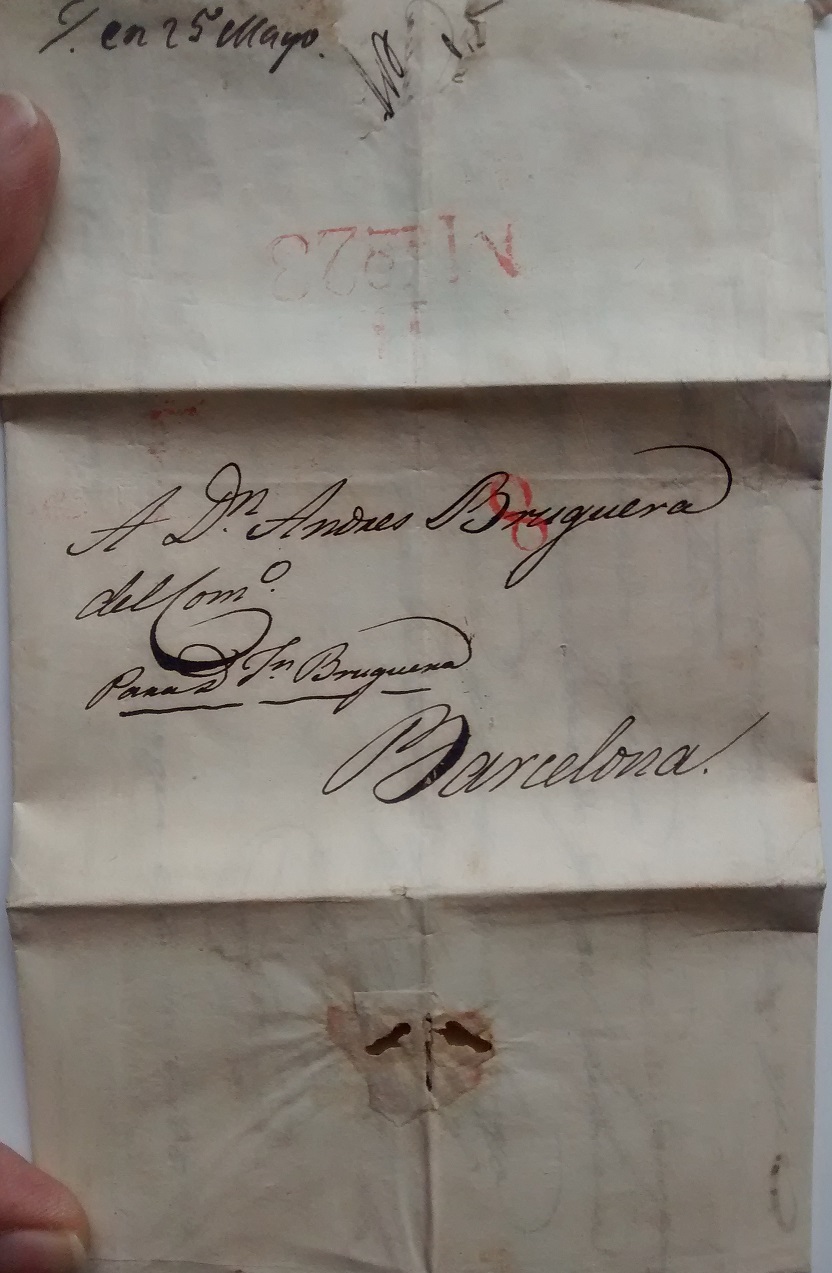 en 25 Mayo.
A Dn. Andres Bruguera
del Como.
Para D Jn Bruguera
Barcelona.